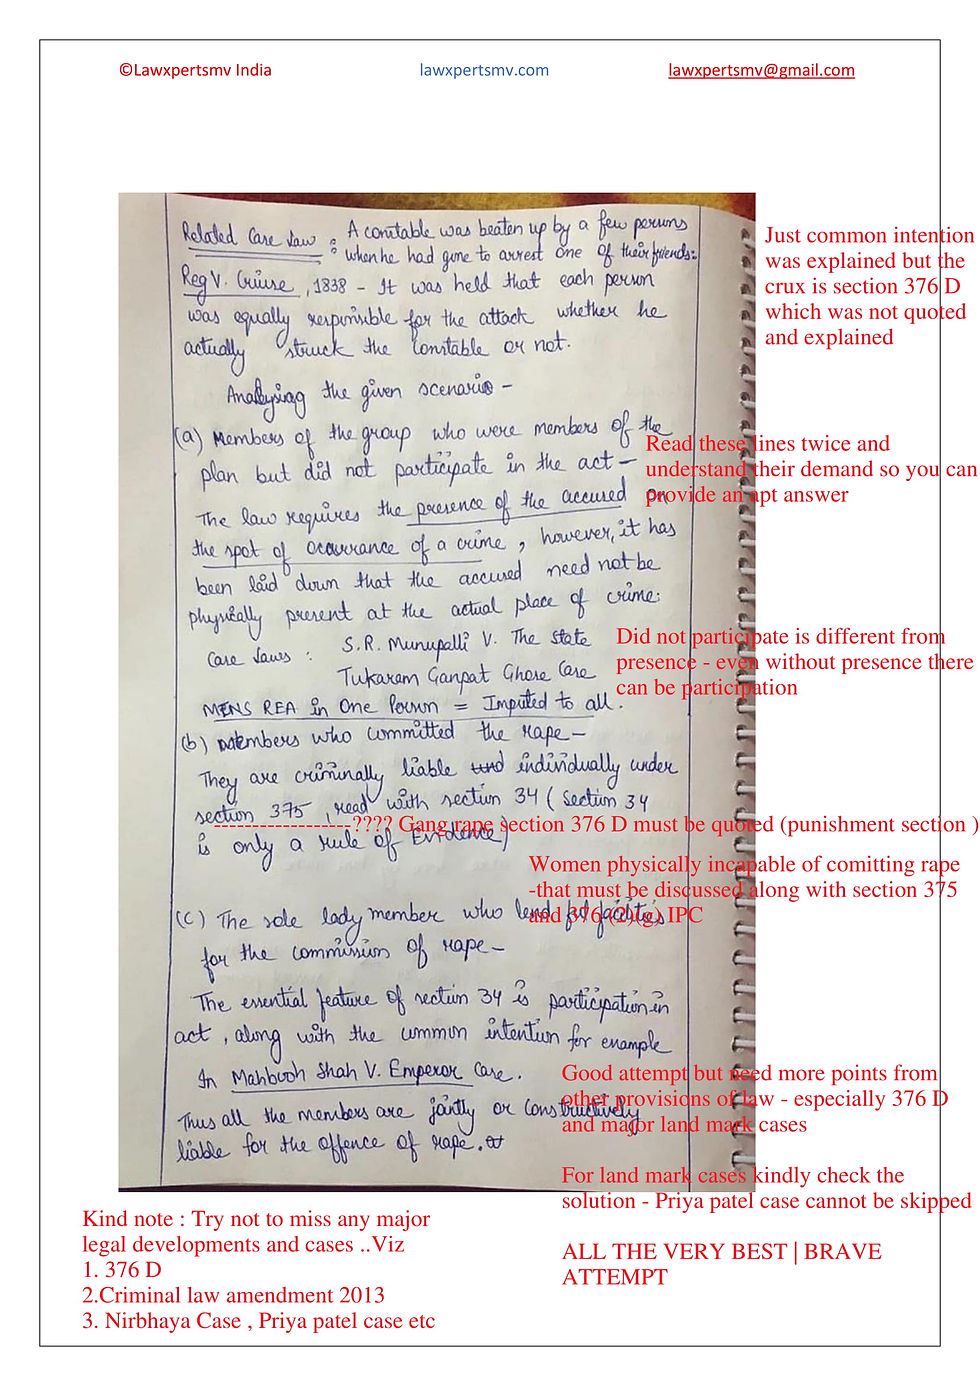 ©Lawxpertsmv India lawxpertsmv.com lawxpertsmv@gmail.com
Related Case Law : A constable was beaten up by a few persons
when he had gone to arrest one of their friends:
Reg V. Cruise, 1838 - It was held that each person
was equally responsible for the attack whether he
actually struck the Constable or not.
Just common intention
was explained but the
crux is section 376 D
which was not quoted
and explained
Analysing the given scenario -
(a) Members of the group who were members of the
plan but did not participate in the act -
Read these lines twice and
understand their demand so you can
provide an apt answer
The law requires the presence of the accused on
the spot of occurrance of a crime, however, it has
been laid down that the accused need not be
physically present at the actual place of crime:
Case Laws : S.R. Munupalli V. The State
Tukaram Ganpat Ghose Case
Did not participate is different from
presence - even without presence there
can be participation
MENS REA in One Person = Imputed to all.
(b) Members who committed the rape -
They are criminally liable individually under
section 375, read with section 34 ( Section 34
is only a rule of Evidence)
------------------???? Gang rape section 376 D must be quoted (punishment section )
Women physically incapable of comitting rape
-that must be discussed along with section 375
and 376 (2)(g) IPC
(C) The sole lady member who lend facilities
for the commission of rape -
The essential feature of section 34 is participation in
act, along with the common intention for example
In Mahbooh Shah V. Emperor Case.
Thus all the members are jointly or Constructively
liable for the offence of rape.
Good attempt but need more points from
other provisions of law - especially 376 D
and major land mark cases
For land mark cases kindly check the
solution - Priya patel case cannot be skipped
ALL THE VERY BEST | BRAVE
ATTEMPT
Kind note : Try not to miss any major
legal developments and cases ..Viz
1. 376 D
2.Criminal law amendment 2013
3. Nirbhaya Case , Priya patel case etc